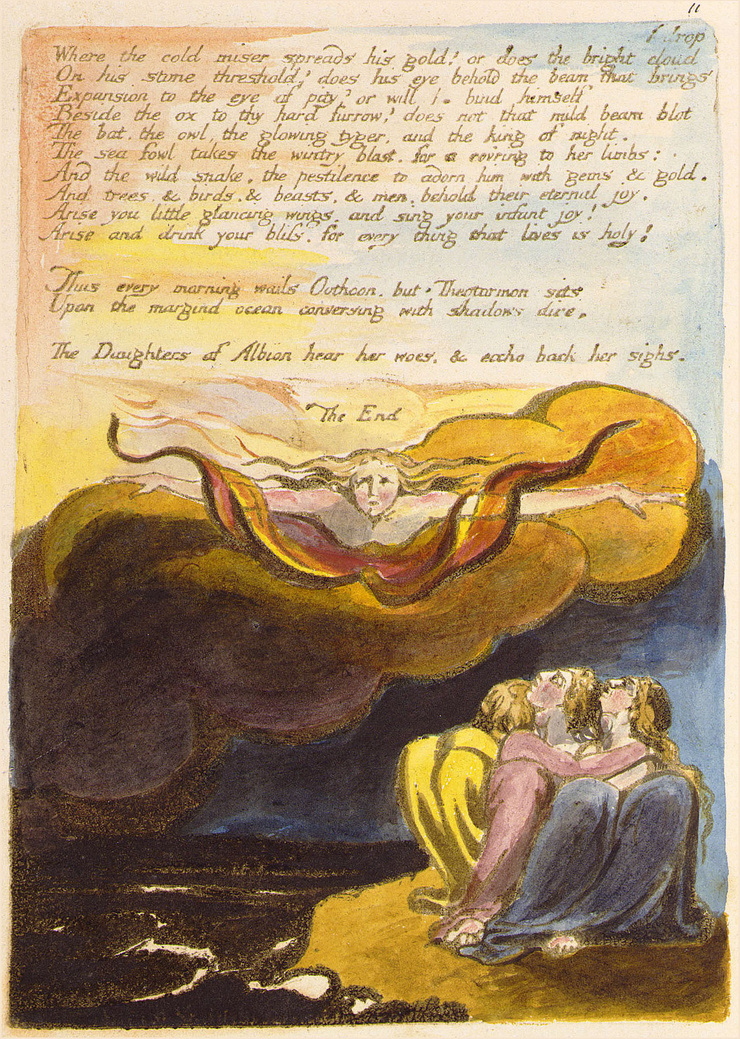 11
drop
Where the cold miser spreads his gold? or does the bright cloud
On his stone threshold? does his eye behold the beam that brings
Expansion to the eye of pity? or will bind himself
Beside the ox to thy hard furrow? does not that mild beam blot
The bat, the owl, the glowing tyger, and the king of night.
The sea fowl takes the wintry blast. for a covring to her limbs:
And the wild snake, the pestilence to adorn him with gems & gold.
And trees. & birds. & beasts. & men. behold their eternal joy.
Arise you little glancing wings, and sing your infant joy!
Arise and drink your bliſs, for every thing that lives is holy!
Thus every morning wails Oothoon. but Theotormon sits
Upon the margind ocean conversing with shadows dire.
The Daughters of Albion hear her woes. & eccho back her sighs.
The End